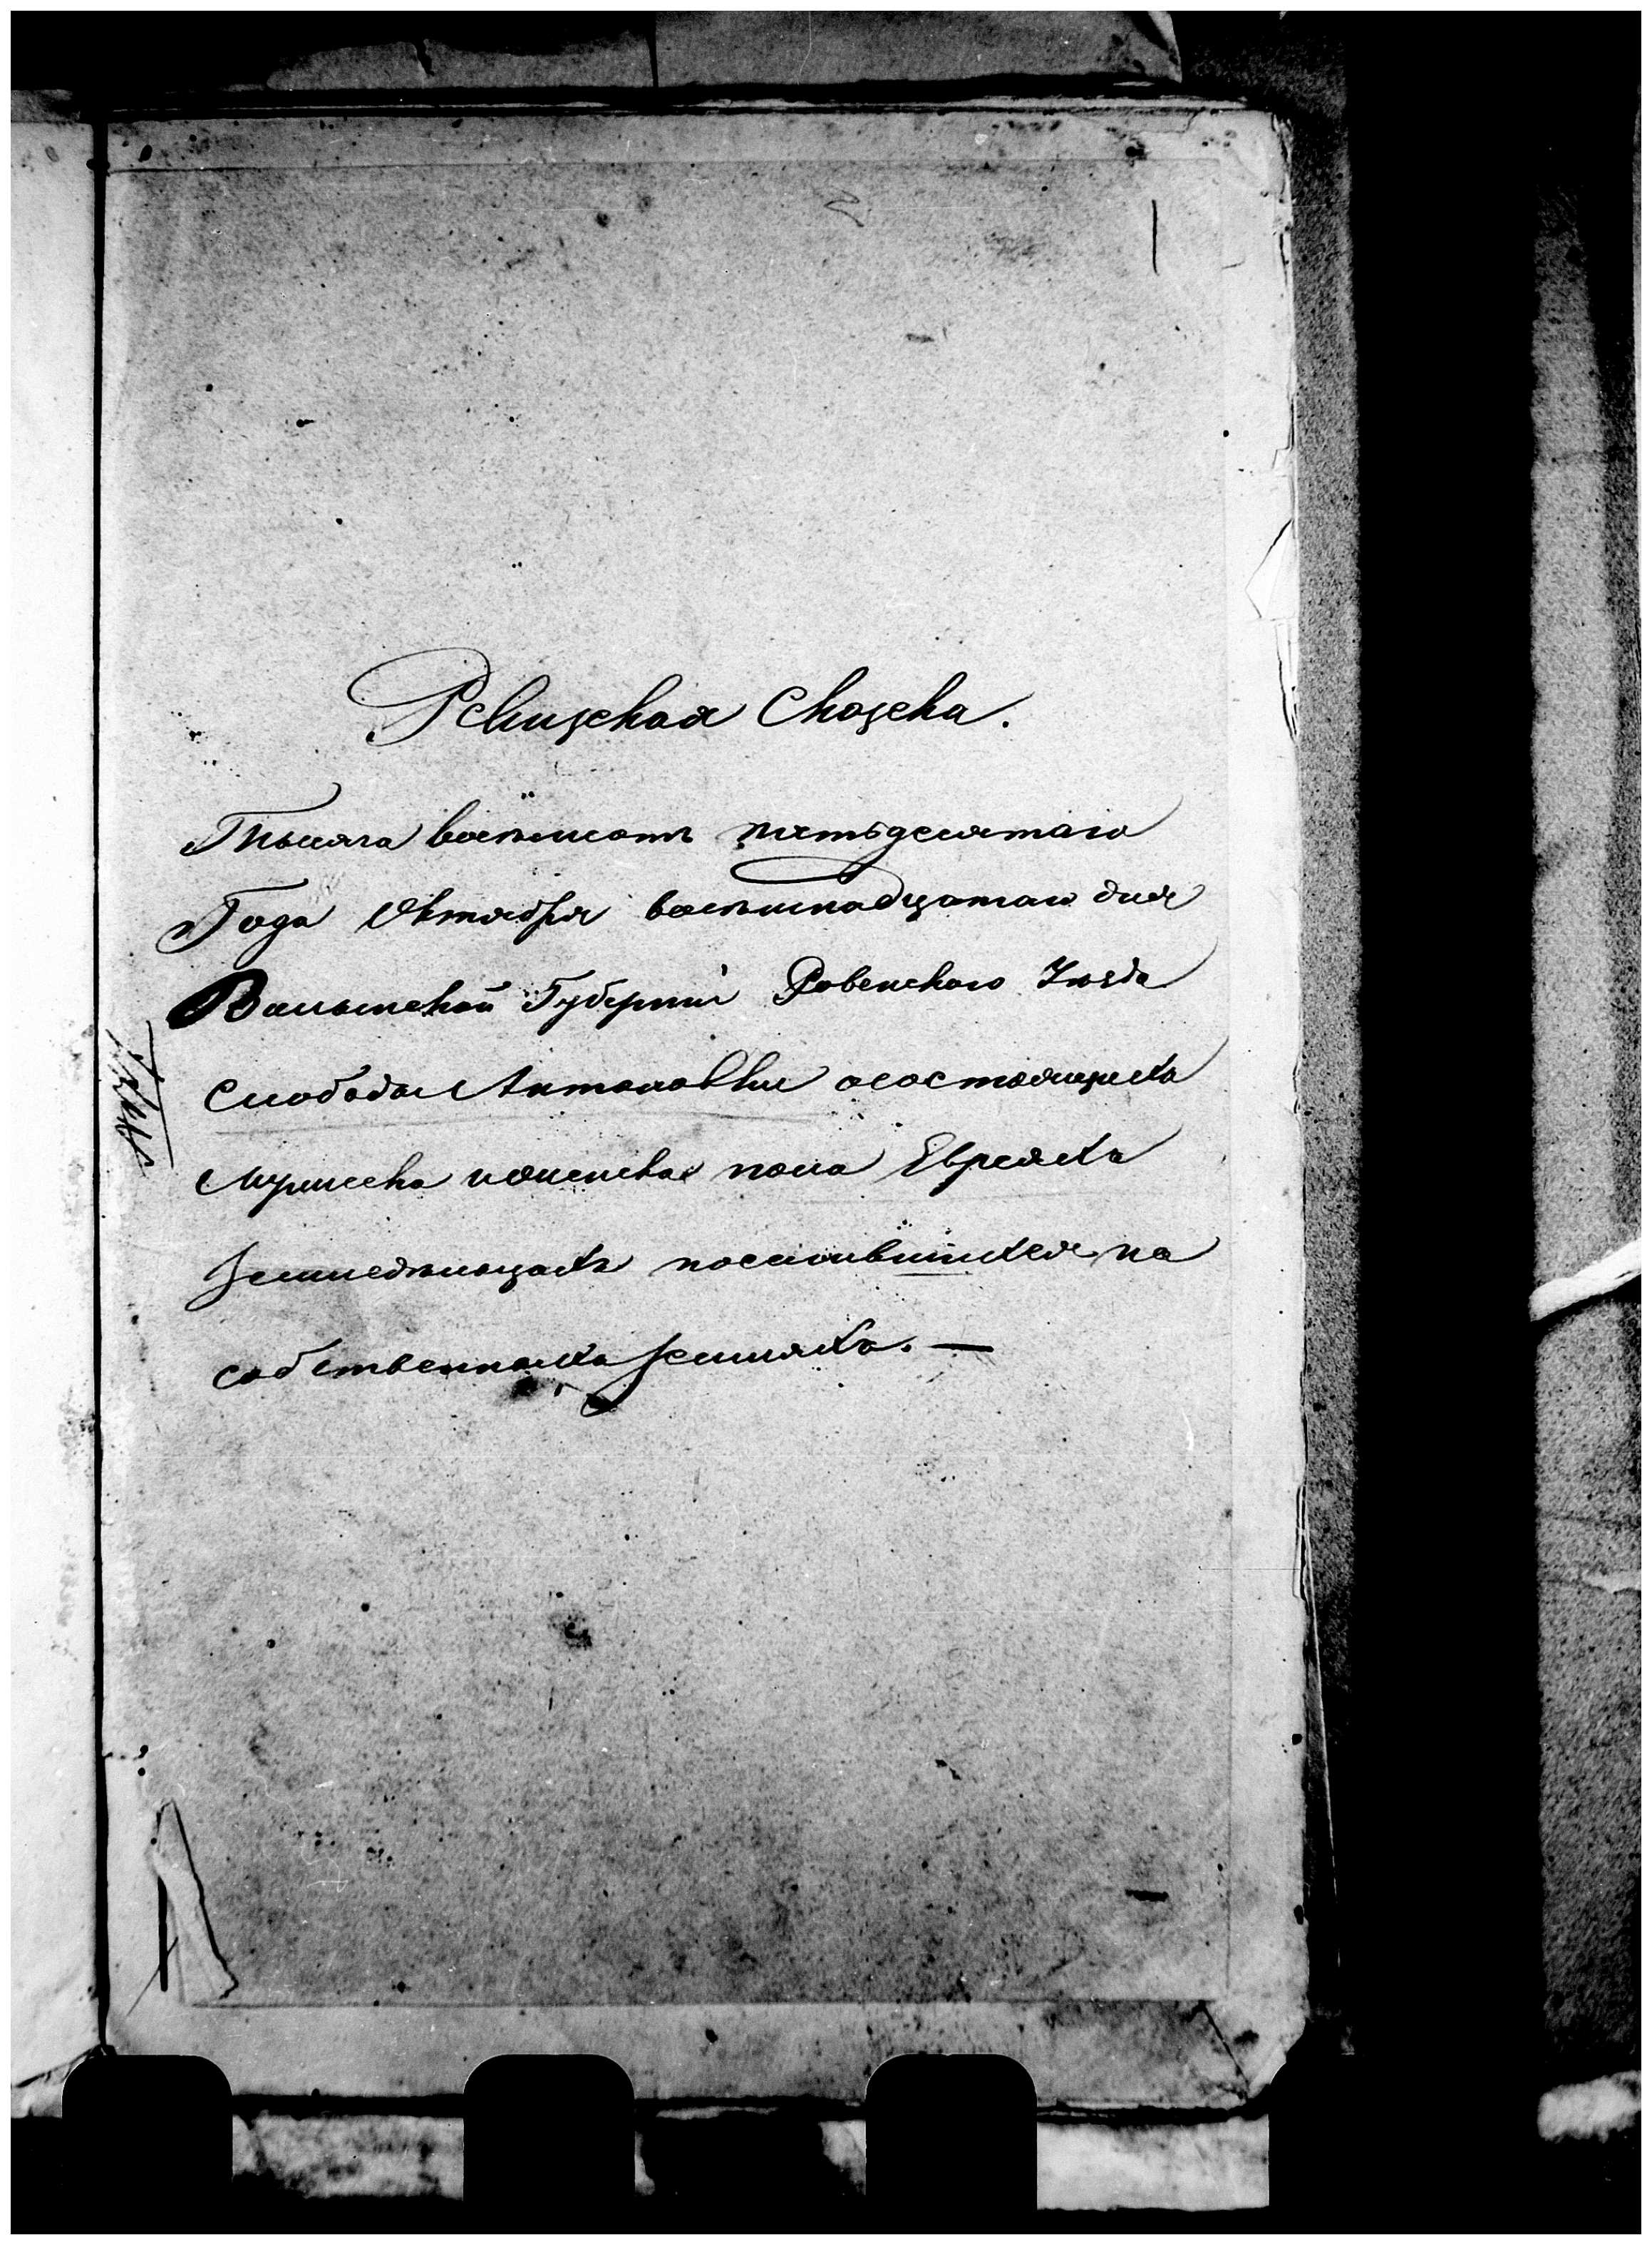 1
Ревизская Сказка.
Тысяча восемьсотъ пятьдесятаго
Года Октября восемнадцатаго дня
Волынской Губерніи Ровенского Уѣзда
Слободы Антоновки осостоящихъ
мужеска иженска пола Евреяхъ
Земледѣльцахъ поселившихся на
собственныхъ земляхъ. —